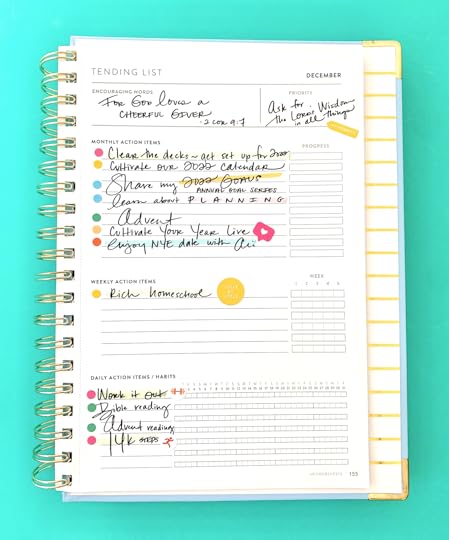 TENDING LIST
DECEMBER
ENCOURAGING WORDS
FOR GOD loves a
CHEERFUL GIVER
2 COR 9:7
PRIORITY
Ask for
the LORD'S Wisdom
in all things
MONTHLY ACTION ITEMS
PROGRESS
Clear the decks ~ get set up for 2022
Cultivate our 2022 calendar
Share my 2022 GOALS
ANNUAL GOAL SERIES
learn about PLANNING
Advent
Cultivate Your Year Live
enjoy NYE date with Ari
WEEKLY ACTION ITEMS
WEEK
1 2 3 4 5
Rich homeschool
DAILY ACTION ITEMS / HABITS
Work it out
Bible reading
Advent reading
14K STEPS
155